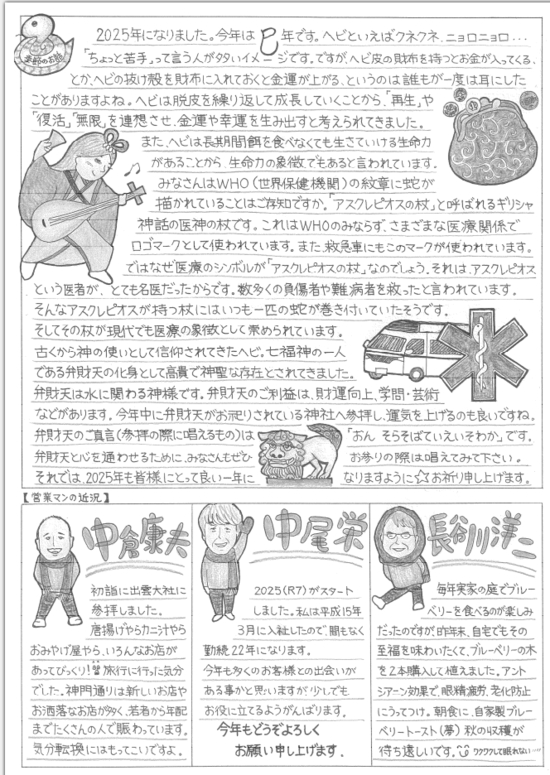 季節のお話
2025年になりました。今年は 巳 年です。ヘビといえばクネクネ、ニョロニョロ・・・
「ちょっと苦手」って言う人が多いイメージです。ですが、ヘビ皮の財布を持つとお金が入ってくる、
とか、ヘビの抜け殻を財布に入れておくと金運が上がる、というのは誰もが一度は耳にした
ことがありますよね。ヘビは脱皮を繰り返して成長していくことから、「再生」や
「復活」「無限」を連想させ、金運や幸運を生み出すと考えられてきました。
また、ヘビは長期間餌を食べなくても生きていける生命力
があることから、生命力の象徴でもあると言われています。
みなさんはWHO(世界保健機関)の紋章に蛇が
描かれていることはご存知ですか。「アスクレピオスの杖」と呼ばれるギリシャ
神話の医神の杖です。これはWHOのみならず、さまざまな医療関係で
ロゴマークとして使われています。また、救急車にもこのマークが使われています。
ではなぜ医療のシンボルが「アスクレピオスの杖」なのでしょう。それは、アスクレピオス
という医者が、とても名医だったからです。数多くの負傷者や難病者を救ったと言われています。
そんなアスクレピオスが持つ杖にはいつも一匹の蛇が巻き付いていたそうです。
そしてその杖が現代でも医療の象徴として崇められています。
古くから神の使いとして信仰されてきたヘビ。七福神の一人
である弁財天の化身として高貴で神聖な存在とされてきました。
弁財天は水に関わる神様です。弁財天のご利益は、財運向上、学問・芸術
などがあります。今年中に弁財天がお祀りされている神社へ参拝し、運気を上げるのも良いですね。
弁財天のご真言(参拝の際に唱えるもの)は 「おん そらそばていえいそわか」です。
弁財天と心を通わせるために、みなさんもぜひ お参りの際は唱えてみて下さい。
それでは、2025年も皆様にとって良い一年に なりますように☆お祈り申し上げます。
【営業マンの近況】
中倉康夫
初詣に出雲大社に
参拝しました。
唐揚げやらカニ汁やら
おみやげ屋やら、いろんなお店が
あってびっくり!旅行に行った気分
でした。神門通りは新しいお店や
お洒落なお店が多く、若者から年配
までたくさんの人で賑わっています。
気分転換にはもってこいですよ。
中尾栄
2025(R7)がスタート
しました。私は平成15年
3月に入社したので、間もなく
勤続22年になります。
今年も多くのお客様との出会いが
ある事かと思いますが、少しでも
お役に立てるようがんばります。
今年もどうぞよろしく
お願い申し上げます。
長谷川洋二
毎年実家の庭でブルー
ベリーを食べるのが楽しみ
だったのですが、昨年末、自宅でもその
至福を味わいたくて、ブルーベリーの木
を2本購入して植えました。アント
シアーン効果で、眼精疲労、老化防止
にうってつけ。朝食に、自家製ブルー
ベリートースト(夢) 秋の収穫が
待ち遠しいです。ワクワクして眠れない・・・